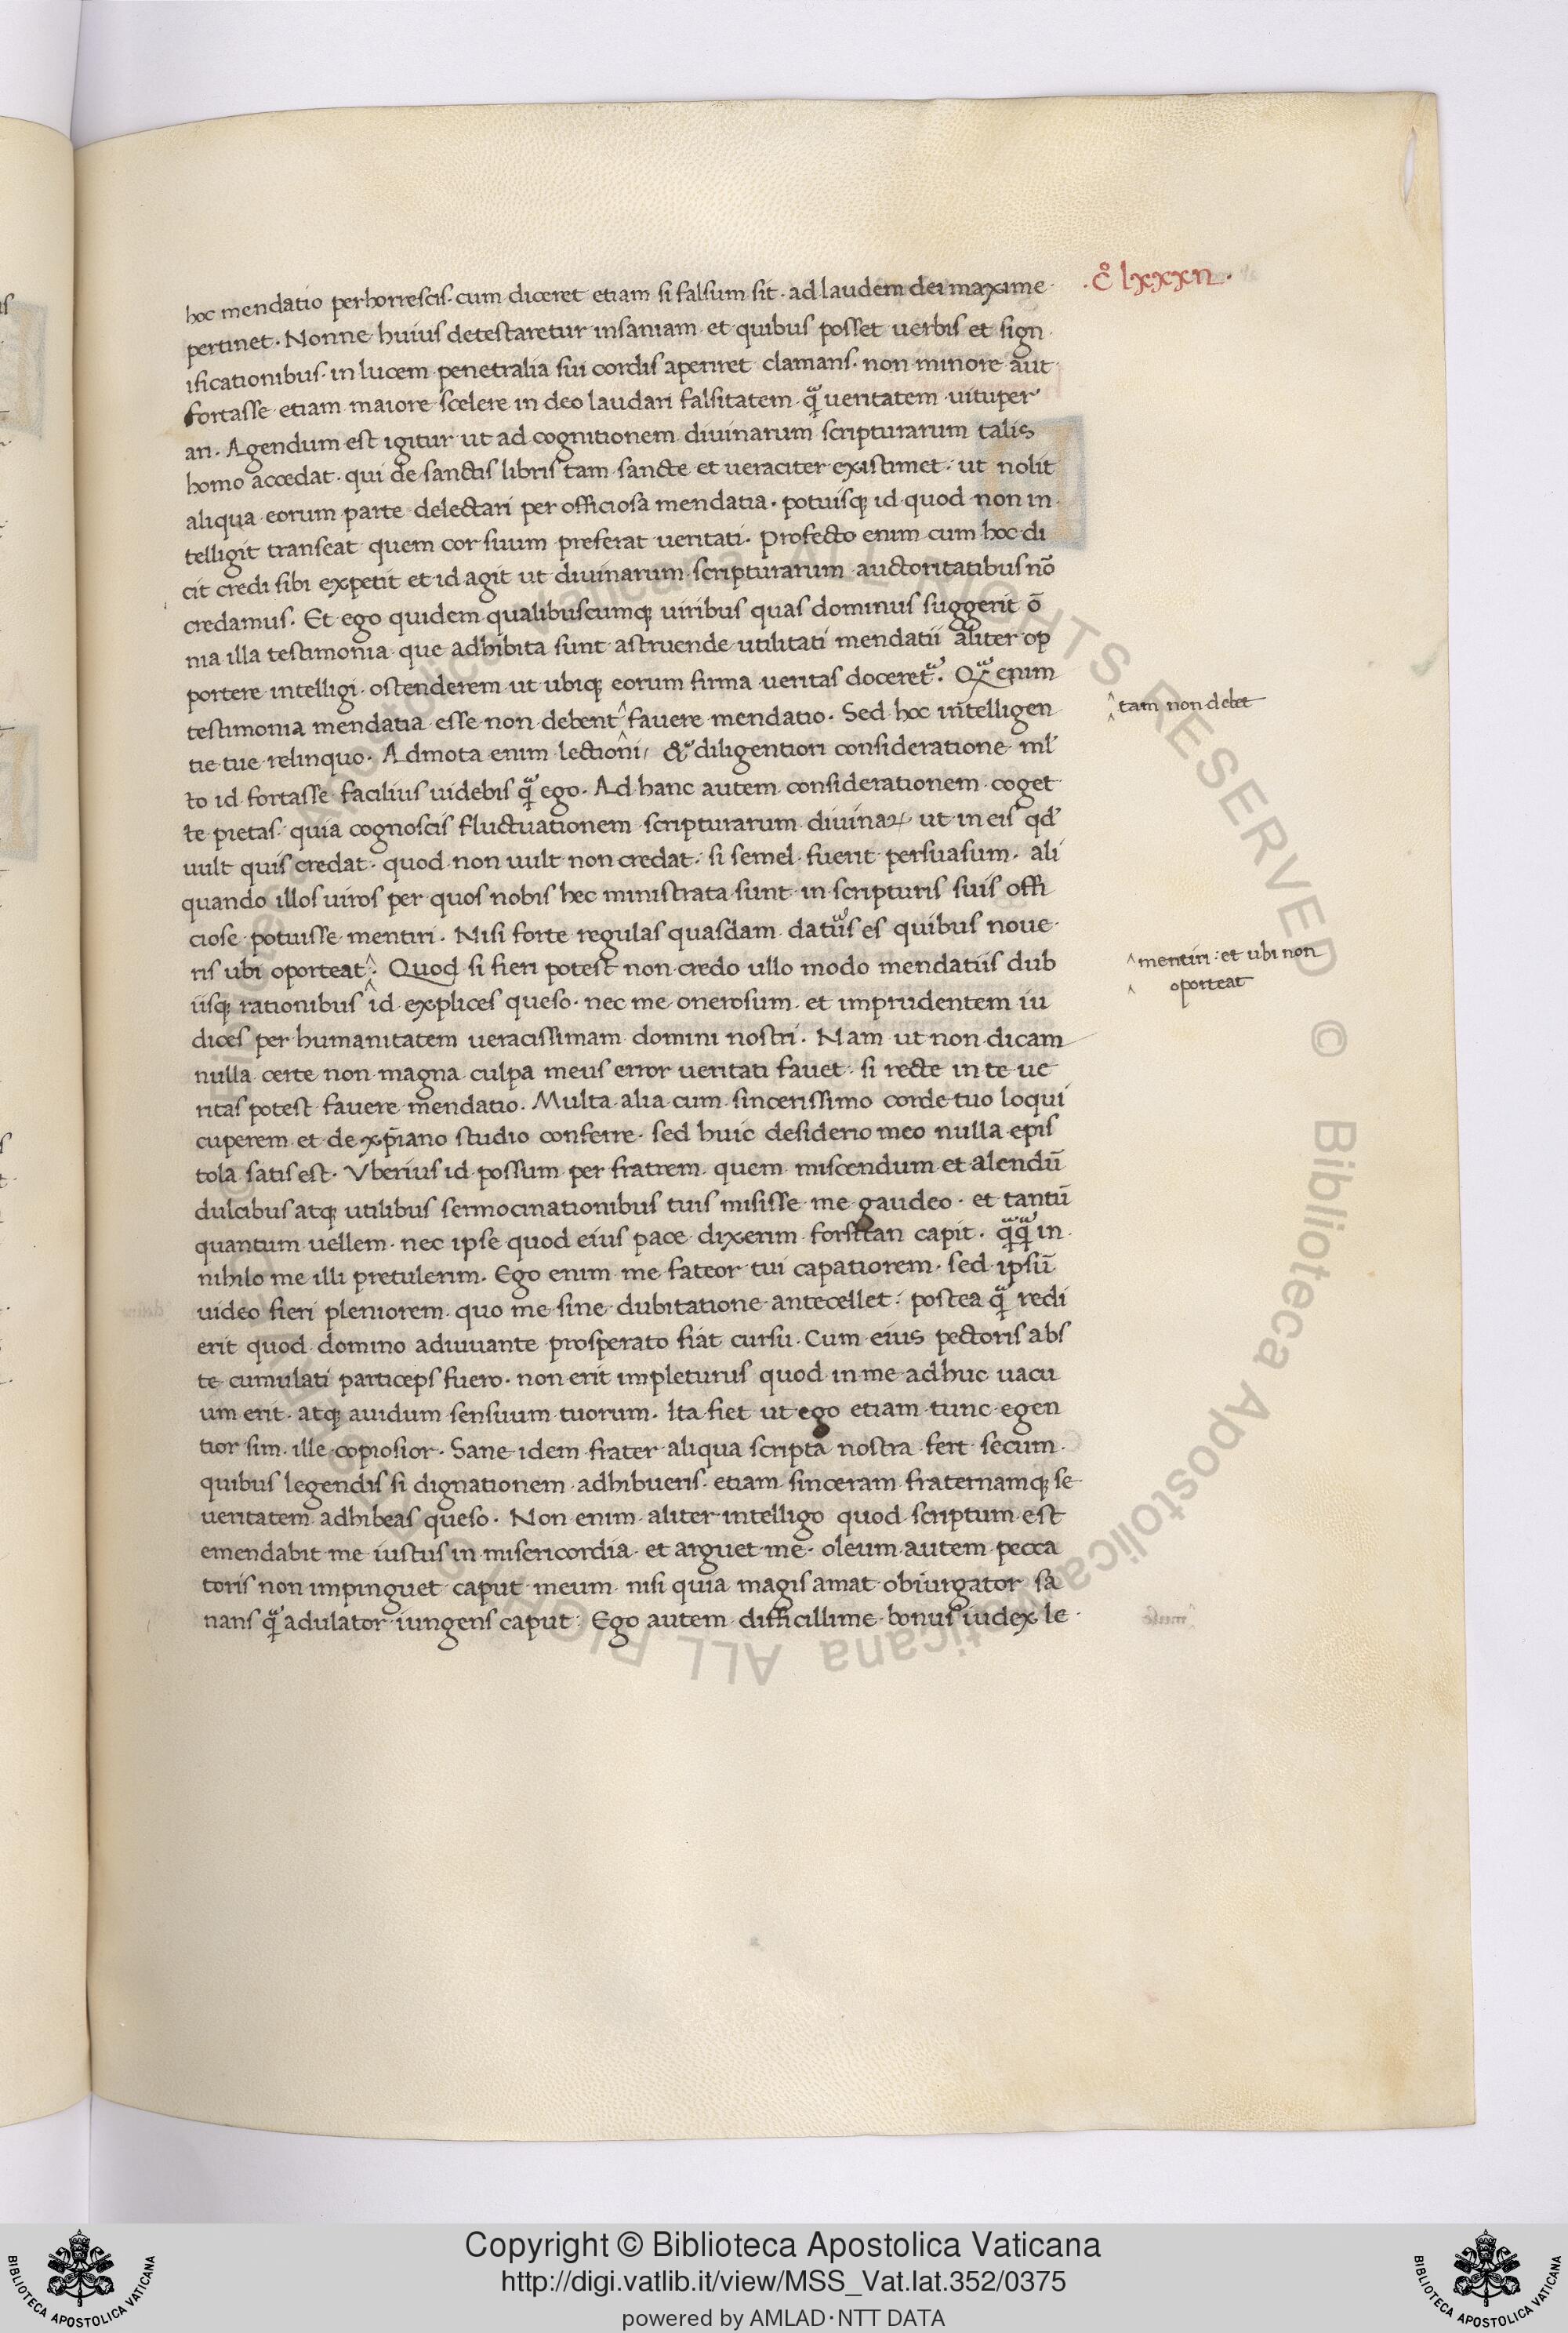 hoc mendatio perhorrescis. cum diceret etiam si falsum sit. ad laudem dei maxime
.c̊ lxxxii.
pertinet. Nonne huius detestaretur insaniam et quibus posset uerbis et sign
ificationibus. in lucem penetralia sui cordis aperiret clamans. non minore aut
fortasse etiam maiore scelere in deo laudari falsitatem. qᷓ ueritatem uituper
ari. Agendum est igitur ut ad cognitionem diuinarum scripturarum talis
homo accedat. qui de sanctis libris tam sancte et ueraciter existimet. ut nolit
aliqua eorum parte delectari per officiosa mendatia. potuisqꝫ id quod non in
telligit transeat quem cor suum preferat ueritati. Profecto enim cum hoc di
cit credi sibi expetit et id agit ut diuinarum scripturarum auctoritatibus nō
credamus. Et ego quidem qualibuscumqꝫ uiribus quas dominus suggerit ō
nia illa testimonia que adhibita sunt astruende utilitati mendatii aliter op
portere intelligi. ostenderem ut ubiqꝫ eorum firma ueritas doceretᷓ. Qᷓ enim
testimonia mendatia esse non debent ^ fauere mendatio. Sed hoc intelligen
^ tam non debet
tie tue relinquo. Admota enim lectioni, & diligentiori consideratione ml᾽
to id fortasse facilius uidebis qᷓ ego. Ad hanc autem considerationem coget
te pietas. quia cognoscis fluctuationem scripturarum diuinaꝝ ut in eis qd᾽
uult quis credat. quod non uult non credat. si semel fuerit persuasum. ali
quando illos uiros per quos nobis hec ministrata sunt in scripturis suis offi
ciose potuisse mentiri. Nisi forte regulas quasdam datuᷓs es quibus noue
ris ubi oporteat ^. Quod si fieri potest non credo ullo modo mendatiis dub
^ mentiri: et ubi non
oporteat
iisqꝫ rationibus id explices queso. nec me onerosum et imprudentem iu
dices per humanitatem ueracissimam domini nostri. Nam ut non dicam
nulla certe non magna culpa meus error ueritati fauet. si recte in te ue
ritas potest fauere mendatio. Multa alia cum sincerissimo corde tuo loqui
cuperem et de xp̄iano studio conferre. sed huic desiderio meo nulla epis
tola satis est. Vberius id possum per fratrem quem miscendum et alendū
dulcibus atqꝫ utilibus sermocinationibus tuis misisse me gaudeo. et tantū
quantum uellem. nec ipse quod eius pace dixerim forsitan capit. qᷓqᷓ in
nihilo me illi pretulerim. Ego enim me fateor tui capatiorem. sed ipsū
uideo fieri pleniorem quo me sine dubitatione antecellet: postea qᷓ redi
erit quod domino adiuuante prosperato fiat cursu. Cum eius pectoris abs
te cumulati particeps fuero. non erit impleturus quod in me adhuc uacu
um erit. atqꝫ auidum sensuum tuorum. Ita fiet ut ego etiam tunc egen
tior sim. ille copiosior. Sane idem frater aliqua scripta nostra fert secum
quibus legendis si dignationem adhibueris. etiam sinceram fraternamqꝫ se
ueritatem adhibeas queso. Non enim aliter intelligo quod scriptum est
emendabit me iustus in misericordia. et arguet me. oleum autem pecca
toris non impinguet caput meum. nisi quia magis amat obiurgator sa
nans qᷓ adulator iungens caput. Ego autem difficillime bonus iudex le
© Biblioteca Apostolica Vaticana ALL RIGHTS RESERVED © Biblioteca Apostolica Vaticana ALL RIGHTS RESERVED
BIBLIOTECA APOSTOLICA VATICANA
Copyright © Biblioteca Apostolica Vaticana
http://digi.vatlib.it/view/MSS_Vat.lat.352/0375
powered by AMLAD·NTT DATA
BIBLIOTECA APOSTOLICA VATICANA